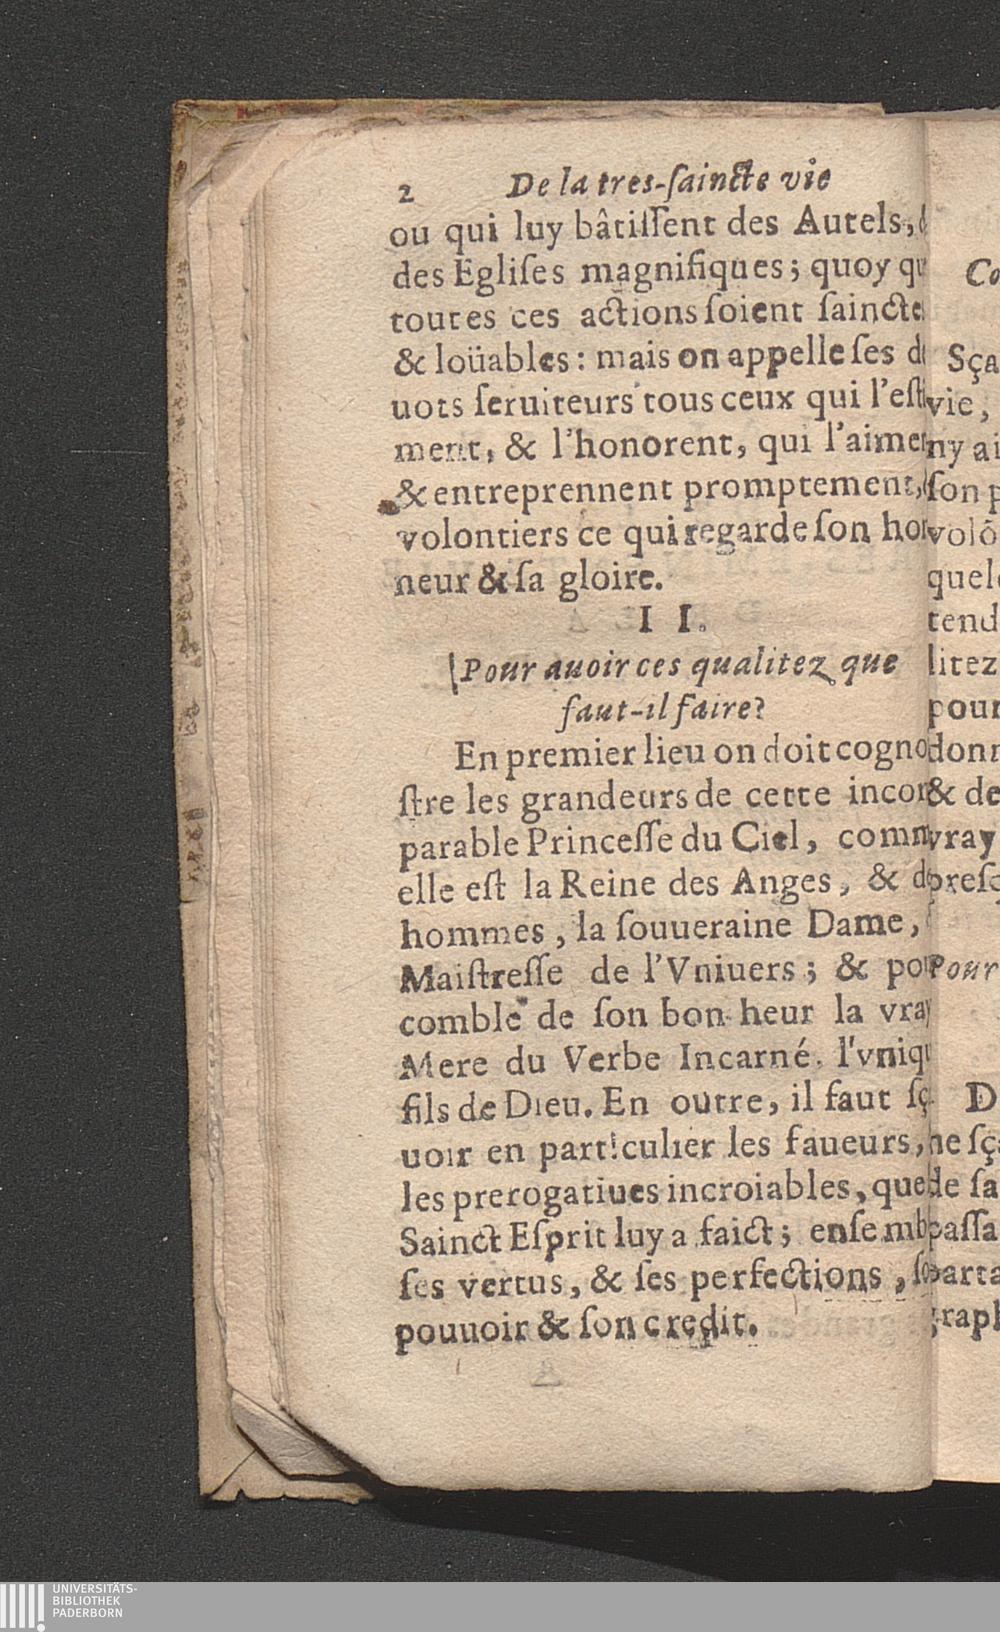 2 De la tres-ſaincte vie
ou qui luy bâtiſſent des Autels,
des Egliſes magnifiques; quoy qu
toutes ces actions ſoient ſaincte
& loüables: mais on appelle ſes d
uots ſeruiteurs tous ceux qui l'eſti
ment, & l'honorent, qui l'aimen
& entreprennent promptement,
volontiers ce qui regarde ſon hon
neur & ſa gloire.
I I.
Pour auoir ces qualitez que
faut-il faire?
En premier lieu on doit cogno
ſtre les grandeurs de cette incom
parable Princeſſe du Ciel, comm
elle eſt la Reine des Anges, & d
hommes, la ſouueraine Dame,
Maiſtreſſe de l'Vniuers; & pou
comble de ſon bon-heur la vray
Mere du Verbe Incarné. l'vniqu
fils de Dieu. En outre, il faut ſç
uoir en particulier les faueurs,
les prerogatiues incroiables, que
Sainct Eſprit luy a faict; enſemb
ſes vertus, & ſes perfections, ſo
pouuoir & ſon credit.
Co
Sça
vie,
ny ai
ſon p
volõ
quel
tend
litez
pour
donn
& de
vray
preſ
Pour
D
ne ſç
de ſa
paſſa
parta
graph
UNIVERSITÄTS-
BIBLIOTHEK
PADERBORN